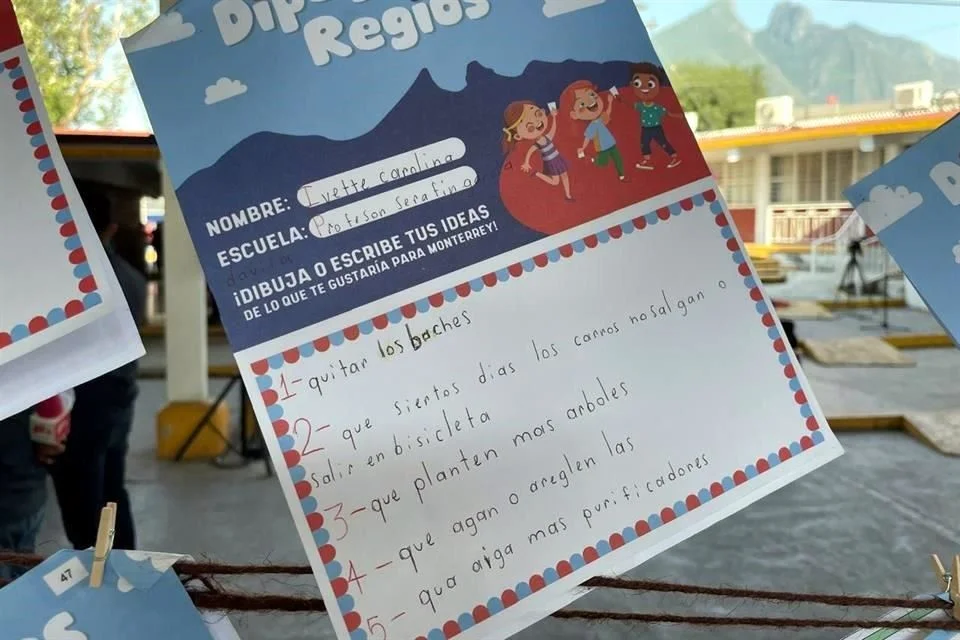 Regios
NOMBRE: Ivette carolina
ESCUELA: Profeson Serafina
davila
¡DIBUJA O ESCRIBE TUS IDEAS
DE LO QUE TE GUSTARÍA PARA MONTERREY!
1- quitar los baches
2- que siertos dias los carros no salgan o
salir en bisicleta
3- que planten mas arboles
4- que agan o areglen las
5- qua aiga mas purificadores
47